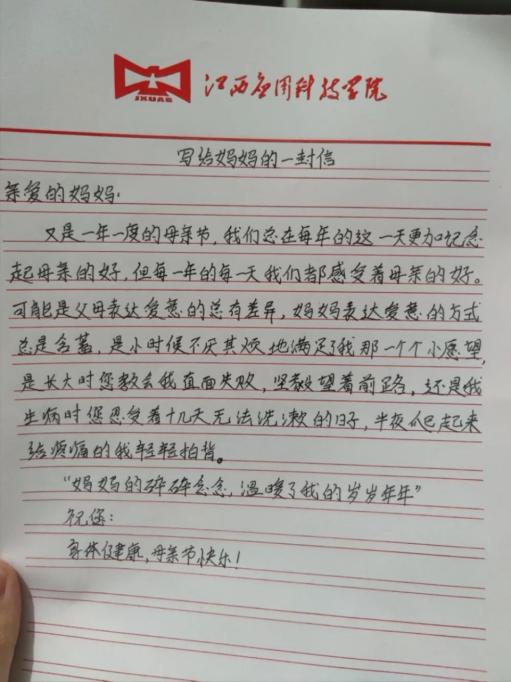 JXUAS
江西应用科技学院
写给妈妈的一封信
亲爱的妈妈:
又是一年一度的母亲节,我们总在每年的这一天更加记念
起母亲的好,但每一年的每一天我们都感受着母亲的好。
可能是父母表达爱意的总有差异,妈妈表达爱意的方式
总是含蓄,是小时候不厌其烦地满足了我那一个个小愿望,
是长大时您教会我直面失败,坚毅望着前路,还是我
生病时您忍受着十几天无法洗漱的日子,半夜爬起来
给疼痛的我轻轻拍背。
“妈妈的碎碎念念,温暖了我的岁岁年年”
祝您:
身体健康,母亲节快乐!